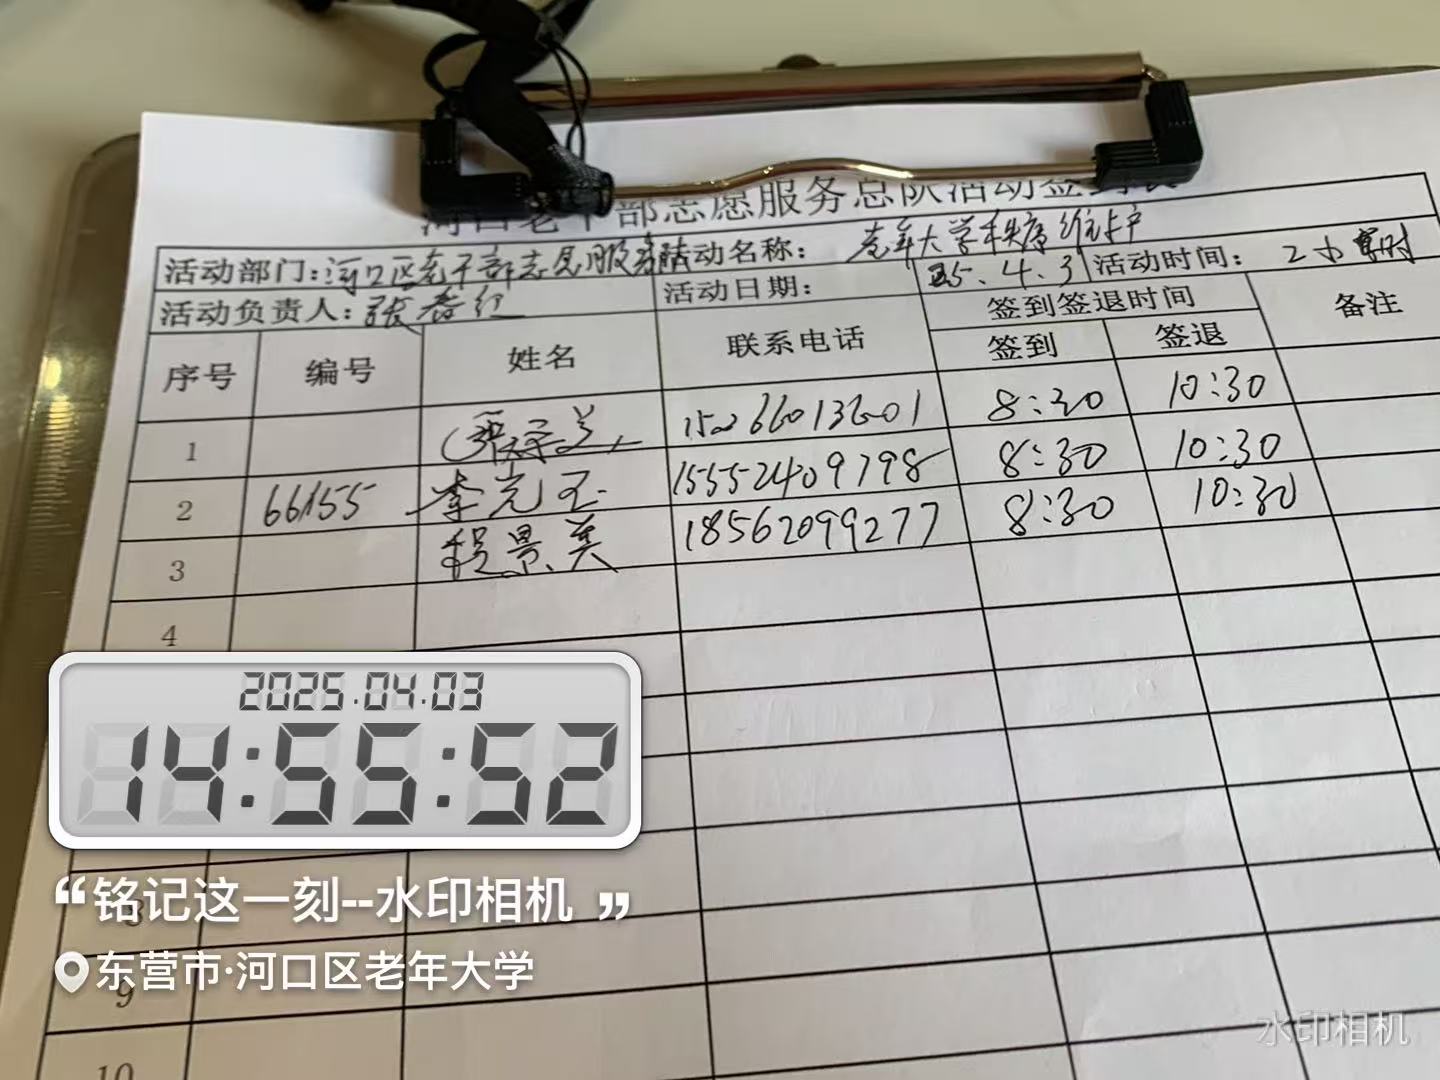 河口老干部志愿服务总队活动签到表
活动部门：河口区老干部志愿服务队 活动名称： 老年大学秩序维护
活动负责人：张春红 活动日期： 25.4.3 活动时间： 2小时
序号 编号 姓名 联系电话 签到签退时间 备注
签到 签退
1 8:30 10:30
2 66155 李光玉 15552409798 8:30 10:30
3 程景美 18562099277 8:30 10:30
4
2025.04.03
14:55:52
“铭记这一刻--水印相机”
东营市·河口区老年大学
9
10
水印相机